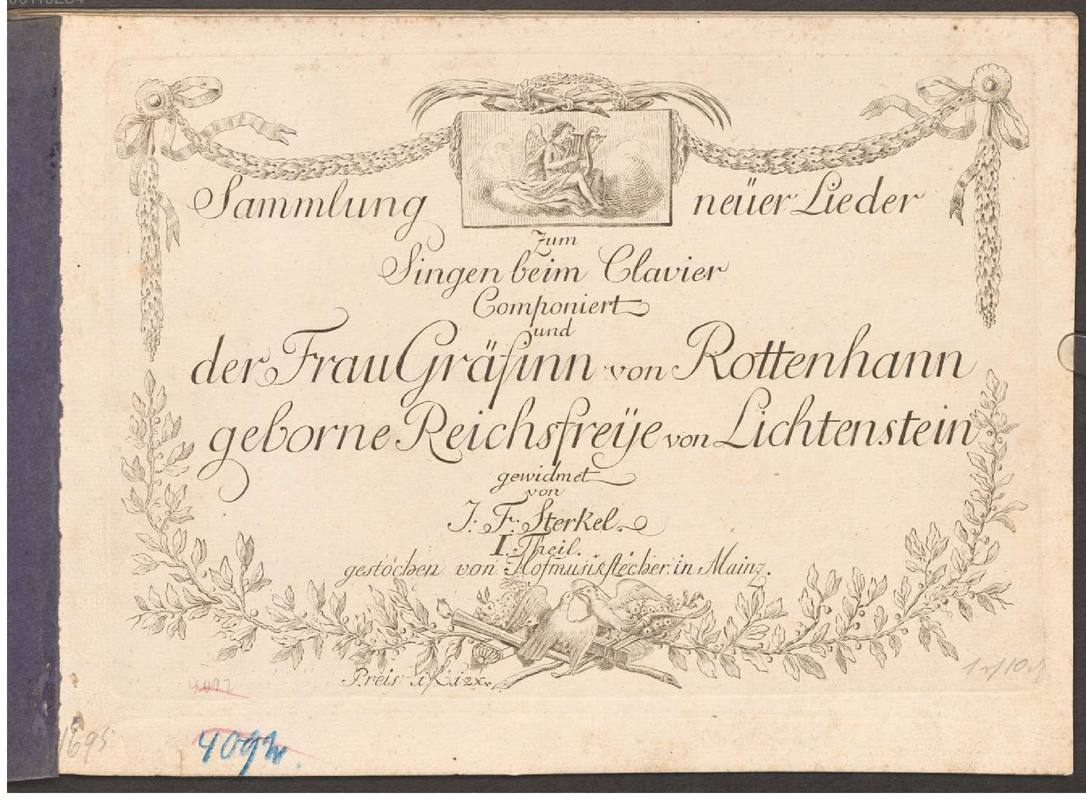 Sammlung neüer Lieder
zum
Singen beim Clavier
Componiert
und
der Frau Gräfinn von Rottenhann
geborne Reichsfreÿe von Lichtenstein
gewidmet
von
J. F. Sterkel.
I. Theil.
gestochen von Hofmusikstecher in Mainz.
Preis 1 f 12 x.
4092
4092
1695